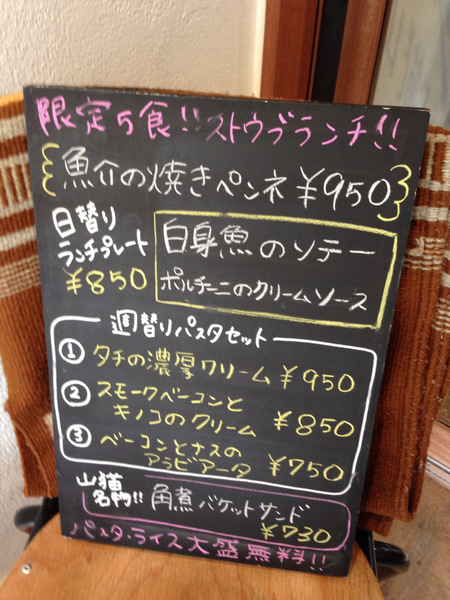 限定5食!!ストウブランチ!!
魚介の焼きペンネ¥950
日替り
ランチプレート
¥850
白身魚のソテー
ポルチーニのクリームソース
週替りパスタセット
① タチの濃厚クリーム ¥950
② スモークベーコンと
キノコのクリーム ¥850
③ ベーコンとナスの
アラビアータ ¥750
山猫
名物!!
角煮バケットサンド
¥730
パスタ・ライス大盛無料!!